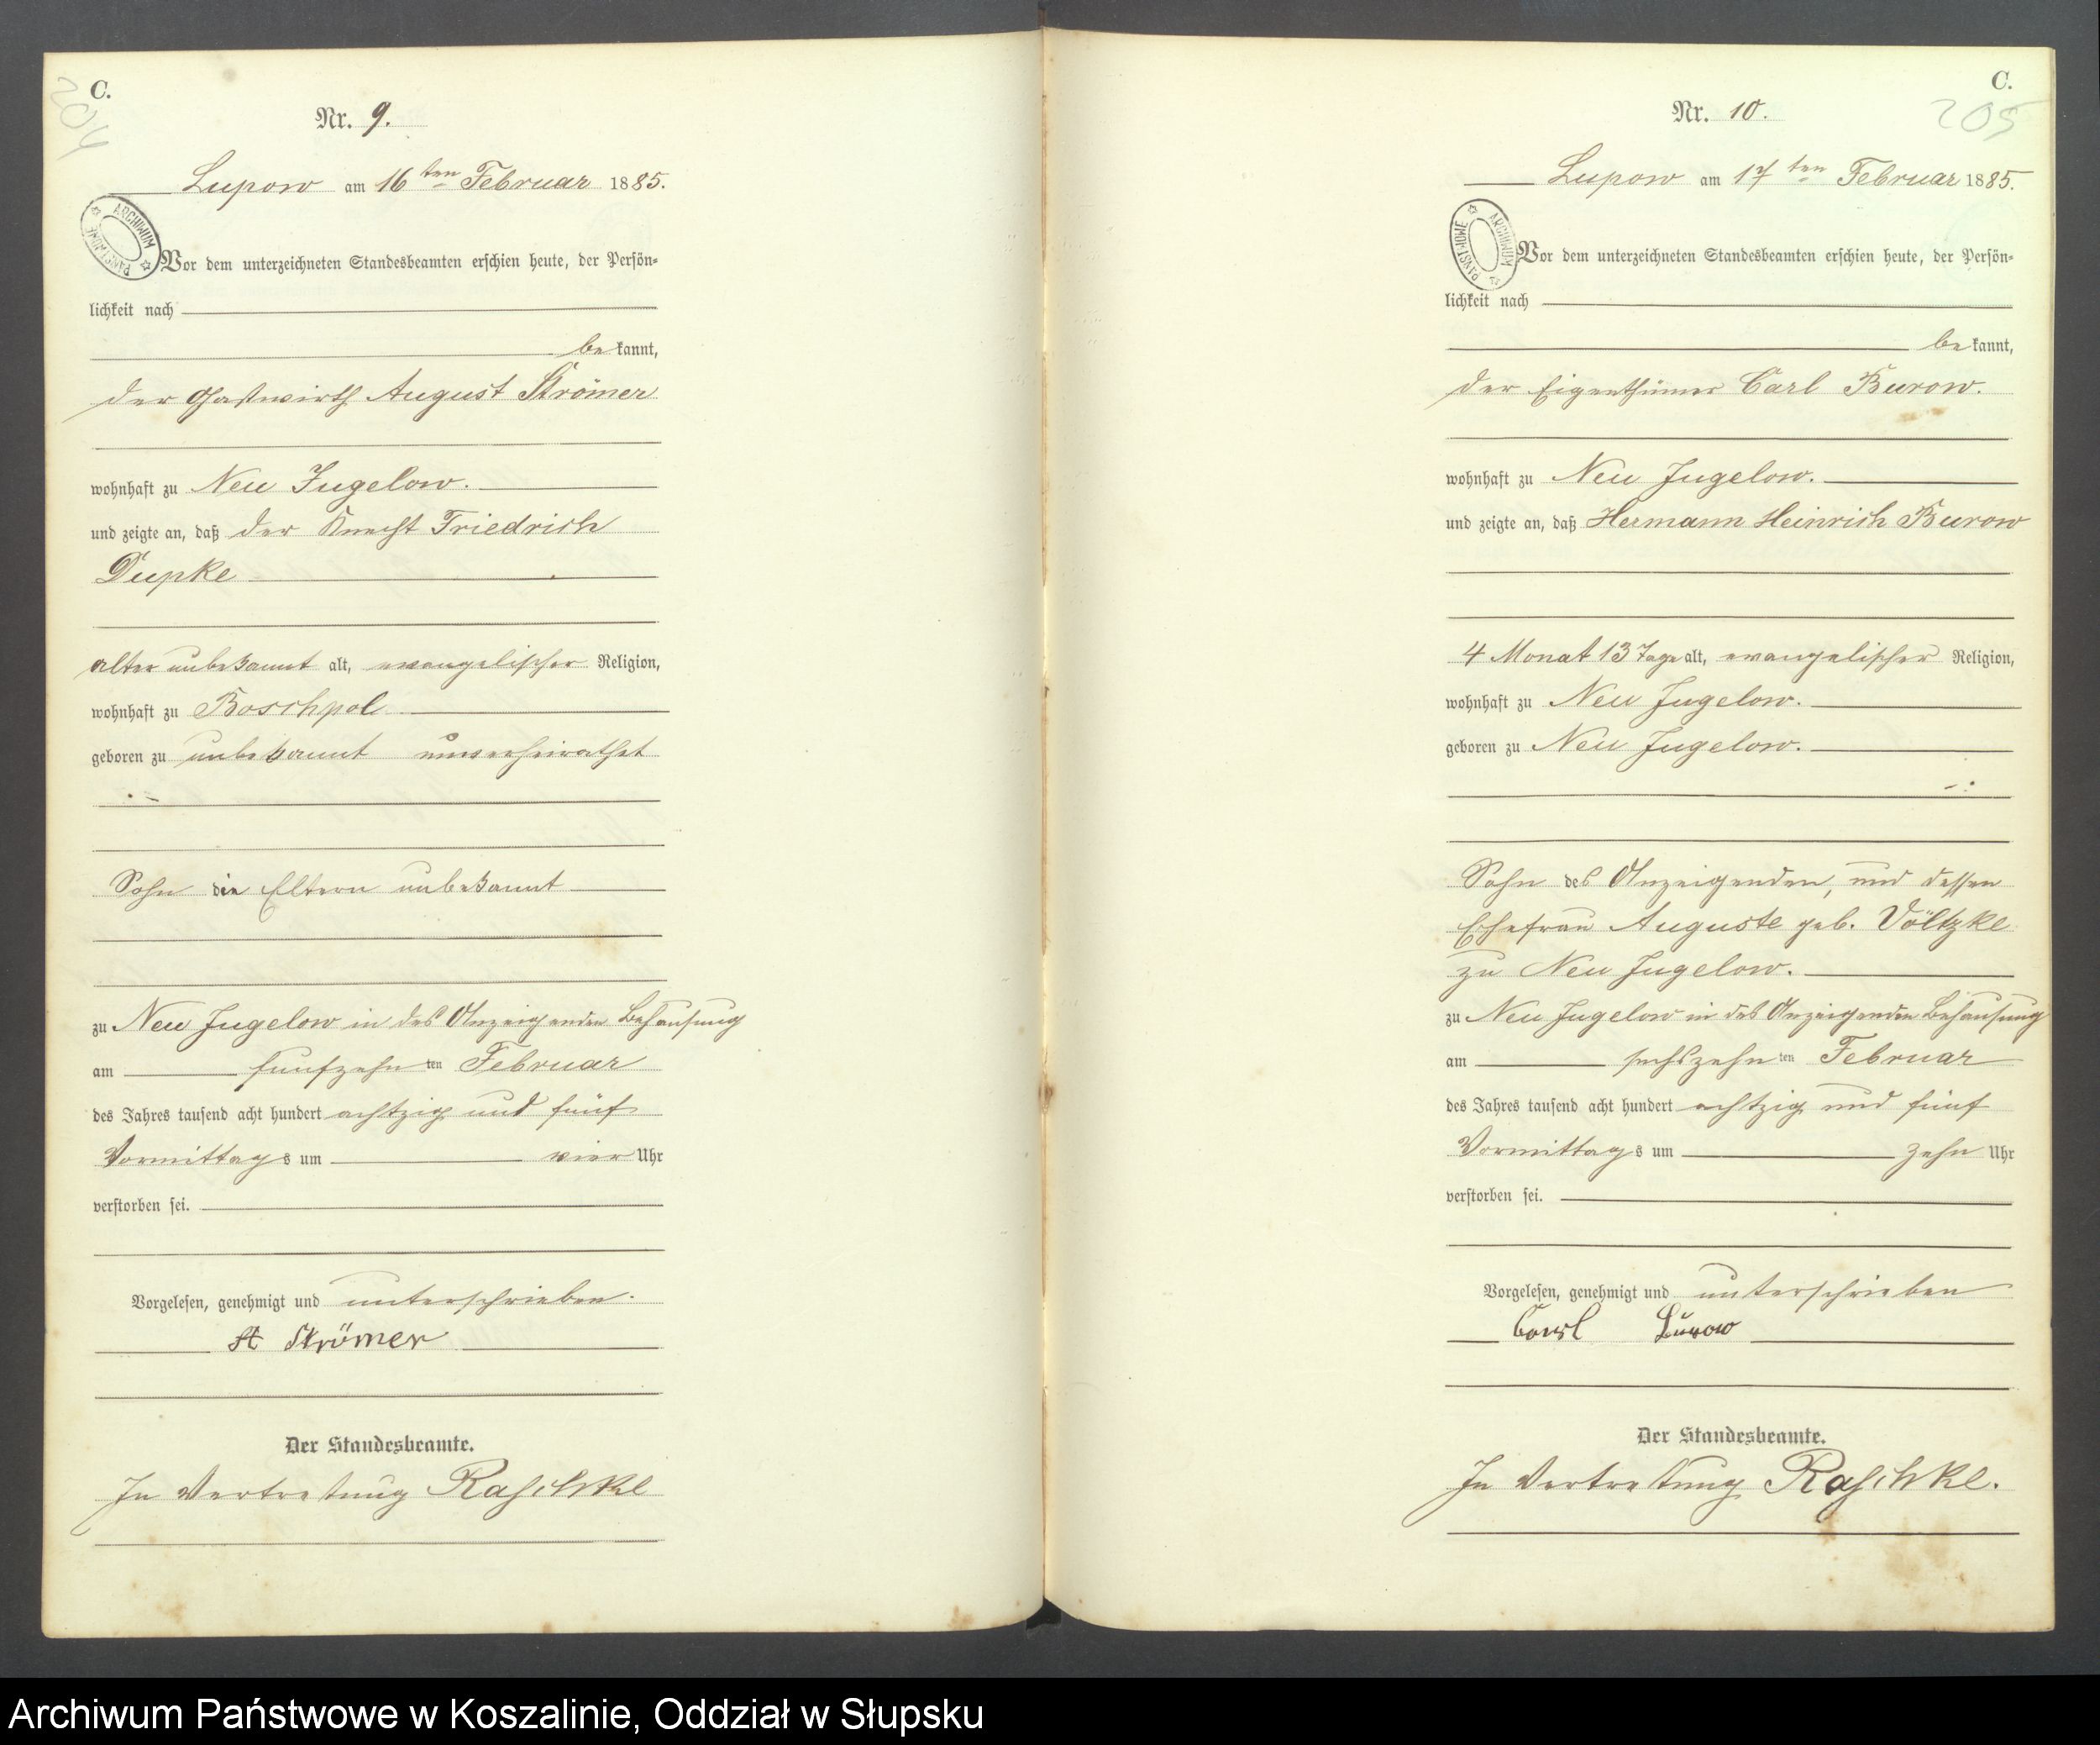 C.
204
Nr. 9.
Lupow am 16 ten Februar 1885.
ARCHIWUM PAŃSTWOWE
Vor dem unterzeichneten Standesbeamten erschien heute, der Persön-
lichkeit nach
bekannt,
der Gastwirth August Strömer
wohnhaft zu Neu Jugelow.
und zeigte an, daß der Knecht Friedrich
Dupke
alter unbekannt alt, evangelischer Religion,
wohnhaft zu Boschpol
geboren zu unbekannt unverheirathet
Sohn die Eltern unbekannt
zu Neu Jugelow in des Anzeigenden Behausung
am funfzehnten Februar
des Jahres tausend acht hundert achtzig und fünf
Vormittags um vier Uhr
verstorben sei.
Vorgelesen, genehmigt und unterschrieben.
A Strömer
Der Standesbeamte.
In Vertretung Raschke
C.
205
Nr. 10.
Lupow am 17 ten Februar 1885.
ARCHIWUM PAŃSTWOWE
Vor dem unterzeichneten Standesbeamten erschien heute, der Persön-
lichkeit nach
bekannt,
der Eigenthümer Carl Burow.
wohnhaft zu Neu Jugelow.
und zeigte an, daß Hermann Heinrich Burow
4 Monat 13 Tage alt, evangelischer Religion,
wohnhaft zu Neu Jugelow.
geboren zu Neu Jugelow.
Sohn des Anzeigenden, und dessen
Ehefrau Auguste geb. Völtzke
zu Neu Jugelow.
zu Neu Jugelow in des Anzeigenden Behausung
am sechszehnten Februar
des Jahres tausend acht hundert achtzig und fünf
Vormittags um zehn Uhr
verstorben sei.
Vorgelesen, genehmigt und unterschrieben
Carl Burow
Der Standesbeamte.
In Vertretung Raschke.
Archiwum Państwowe w Koszalinie, Oddział w Słupsku